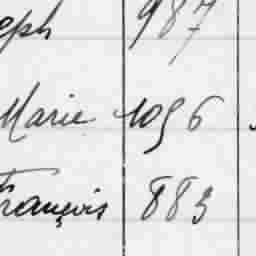 eph 987
Marie 1056
François 883